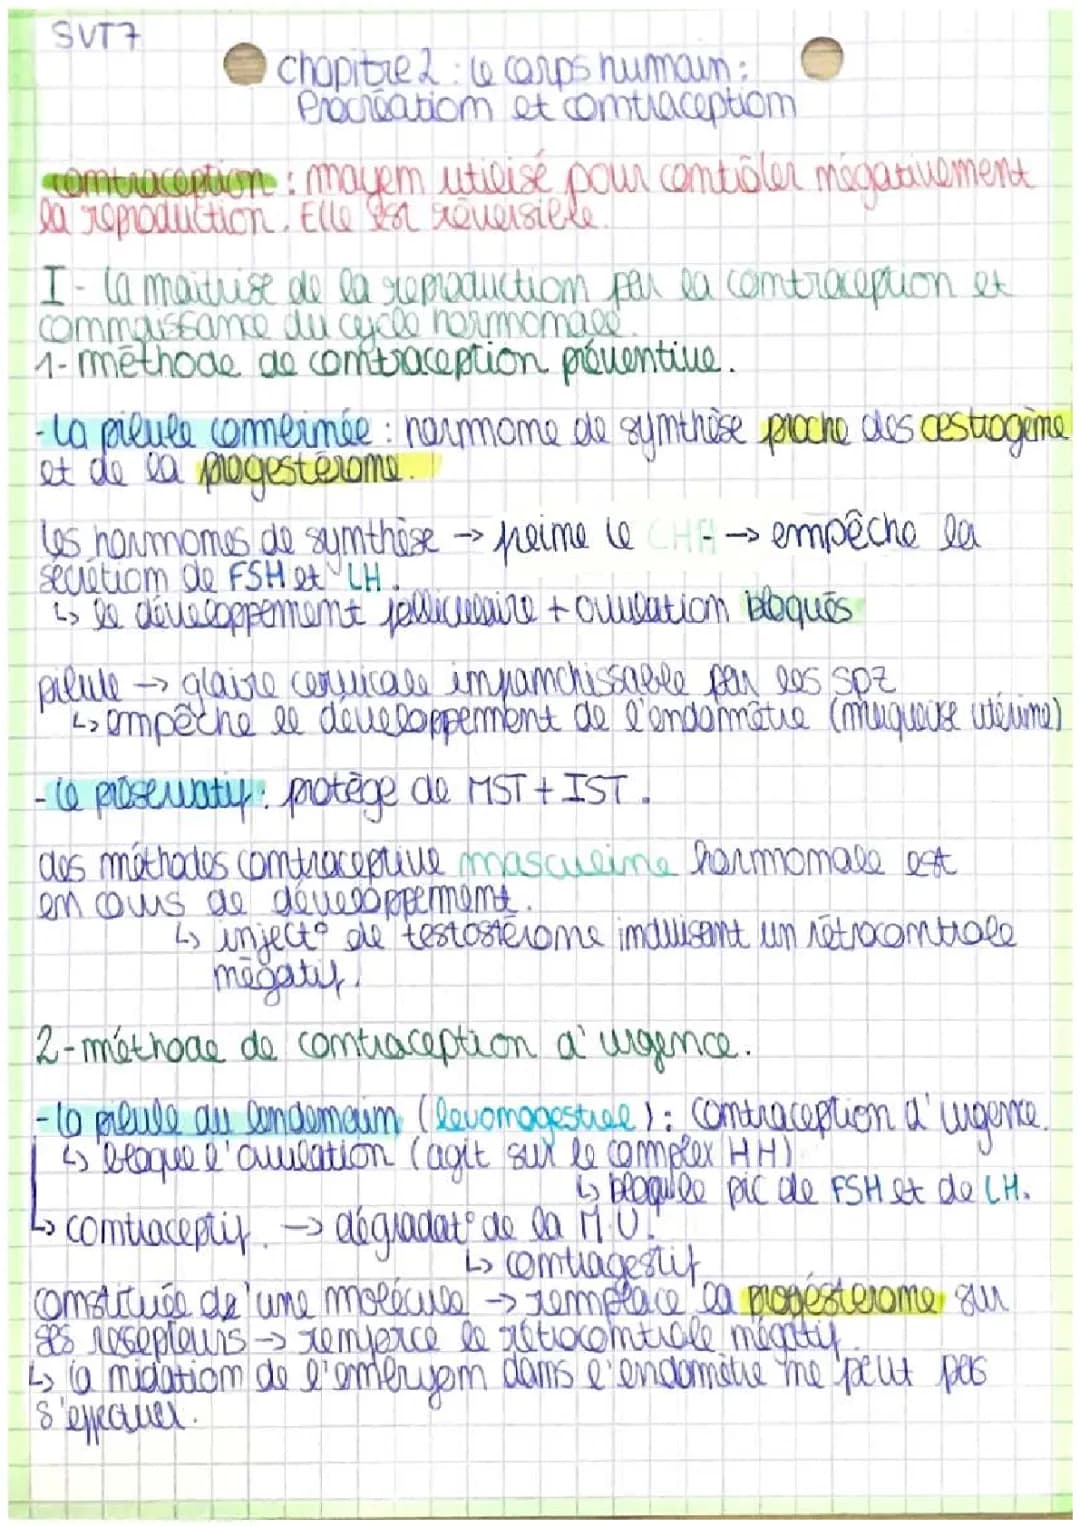 SVT7
chapitre 2 : le corps humain :
Procréation et contraception
contraception : moyen utilisé pour contrôler négativement
la reproduction. Elle est réversible.
I - la maitrise de la reproduction par la contraception et
connaissance du cycle hormonale.
1- méthode de contraception préventive.
- La pilule combinée : hormone de synthèse proche des œstrogène
et de la progestérone.
les hormones de synthèse → freine le CHH → empêche la
sécrétion de FSH et LH.
↳ le développement folliculaire + ovulation bloqués
pilule → glaire cervicale infranchissable par les SPZ
↳ empêche le développement de l'endomètre (muqueuse utérine)
- le préservatif : protège de MST + IST.
des méthodes contraceptive masculine hormonale est
en cours de développement.
↳ inject° de testostérone induisant un rétrocontrole
négatif.
2- méthode de contraception d'urgence.
- la pilule du lendemain (levonogestrel) : contraception d'urgence.
↳ bloque l'ovulation (agit sur le complex HH)
↳ bloque le pic de FSH et de LH.
↳ contraceptif. → dégradat° de la M.U.
↳ contragestif
constituée de'une molécule → remplace la progésterone sur
ses resepteurs → renforce le rétrocontrole négatif.
↳ la nidation de l'embryon dans l'endomètre ne peut pas
s'effectuer.